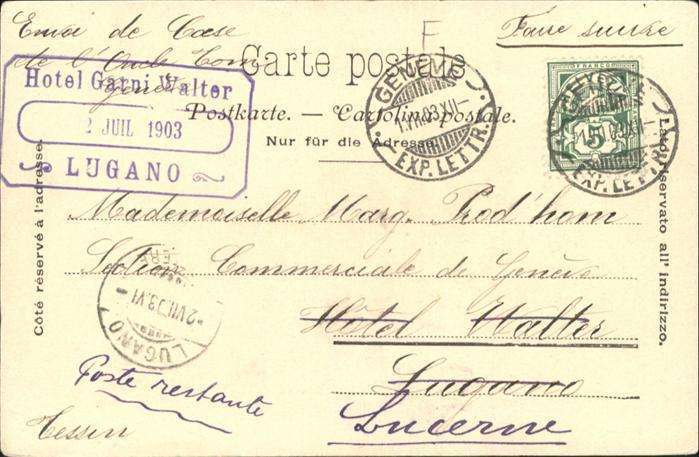 Envoi de Cæse
Faire suivre
F
de l'Oncle Tom
Genève
Carte postale
Postkarte. — Cartolina postale.
Nur für die Adresse
Hotel Garni Walter
2 JUIL 1903
LUGANO
GENÈVE
1.VII.03.XII-
EXP. LETTR.
FRANCO
5
GENÈVE
1.VII.03.XII-
EXP. LETTR.
Côté réservé à l'adresse.
Lato riservato all' indirizzo.
Mademoiselle Marg. Prod'hom
Section Commerciale de Genève
Hôtel Walter
Lugano
2.VII.03.VI-
LUGANO
Poste restante
Lucerne
Tessin